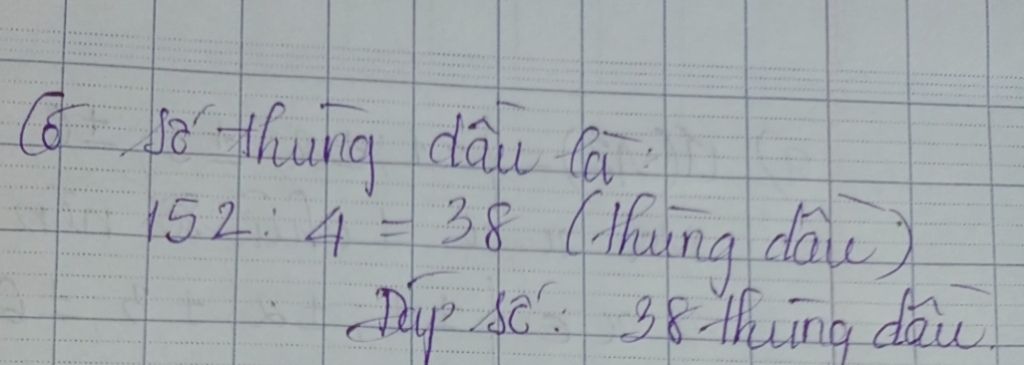 Có số thùng dầu là:
152 : 4 = 38 (thùng dầu)
Đáp số: 38 thùng dầu.